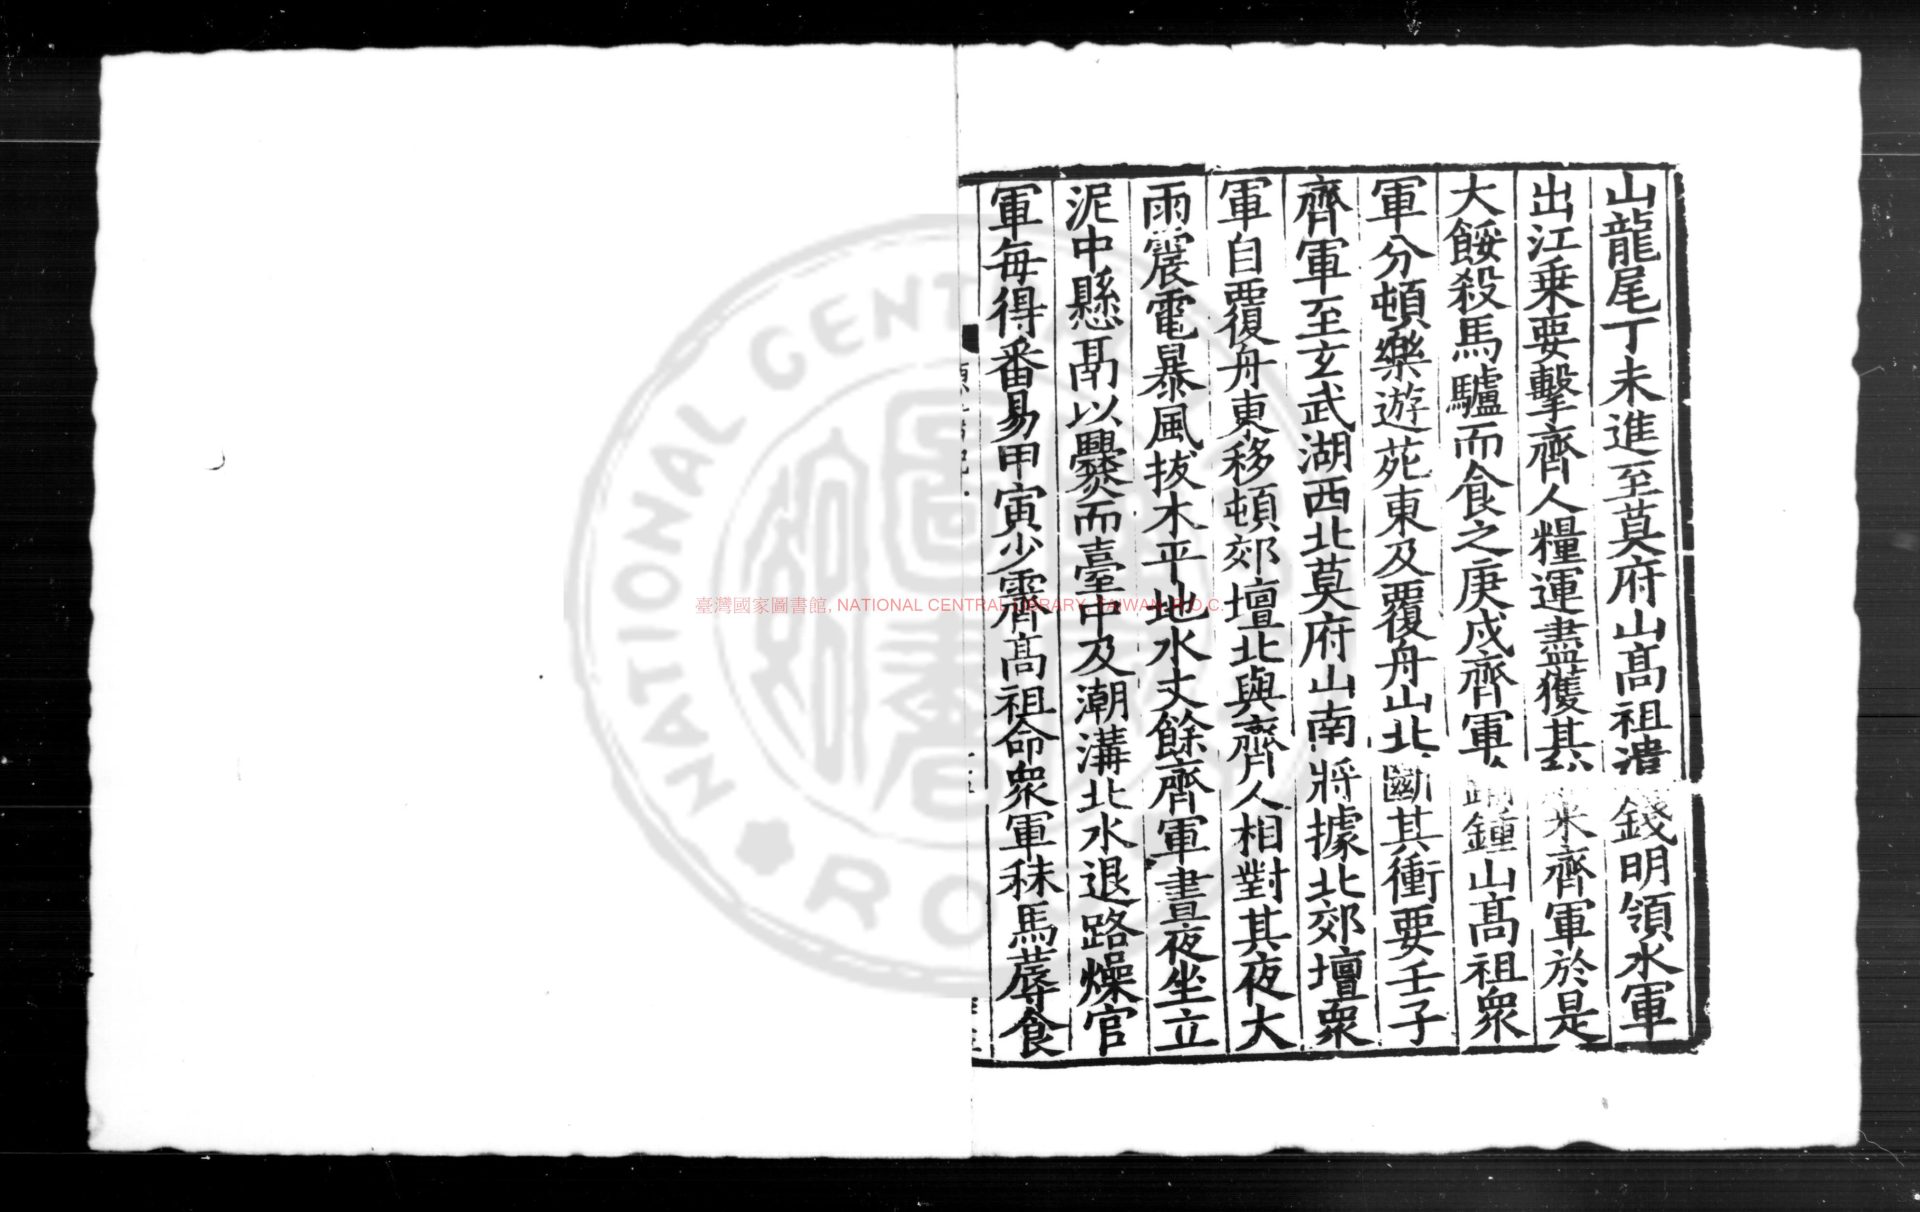 山龍尾丁未進至莫府山髙祖遣錢明領水軍
出江乗要擊齊人糧運盡獲其船米齊軍於是
大餒殺馬驢而食之庚戍齊軍踰鍾山髙祖衆
軍分頓樂遊苑東及覆舟山北斷其衝要壬子
齊軍至玄武湖西北莫府山南將據北郊壇衆
軍自覆舟東移頓郊壇北與齊人相對其夜大
雨震電暴風拔木平地水丈餘齊軍晝夜坐立
泥中懸鬲以爨而臺中及潮溝北水退路燥官
軍每得番易甲寅少霽齊髙祖命衆軍秣馬蓐食
臺灣國家圖書館, NATIONAL CENTRAL LIBRARY, TAIWAN, R.O.C.